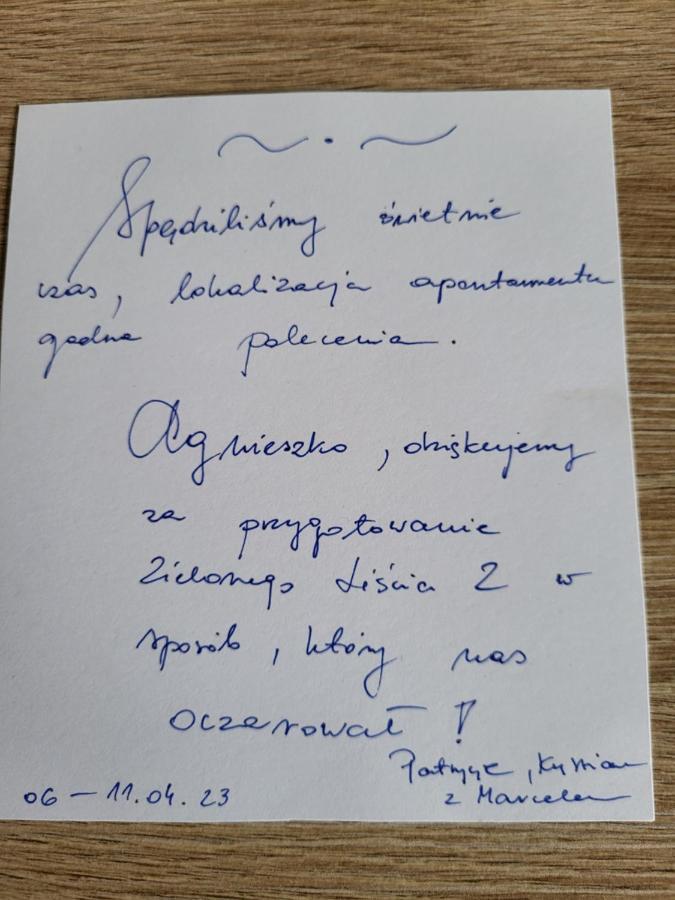 ~ . ~
Spędziliśmy świetnie
czas, lokalizacja apartamentu
godna polecenia.
Agnieszko, dziękujemy
za przygotowanie
Zielonego Liścia 2 w
sposób, który nas
oczarował!
z Marcelem
06 - 11.04.23